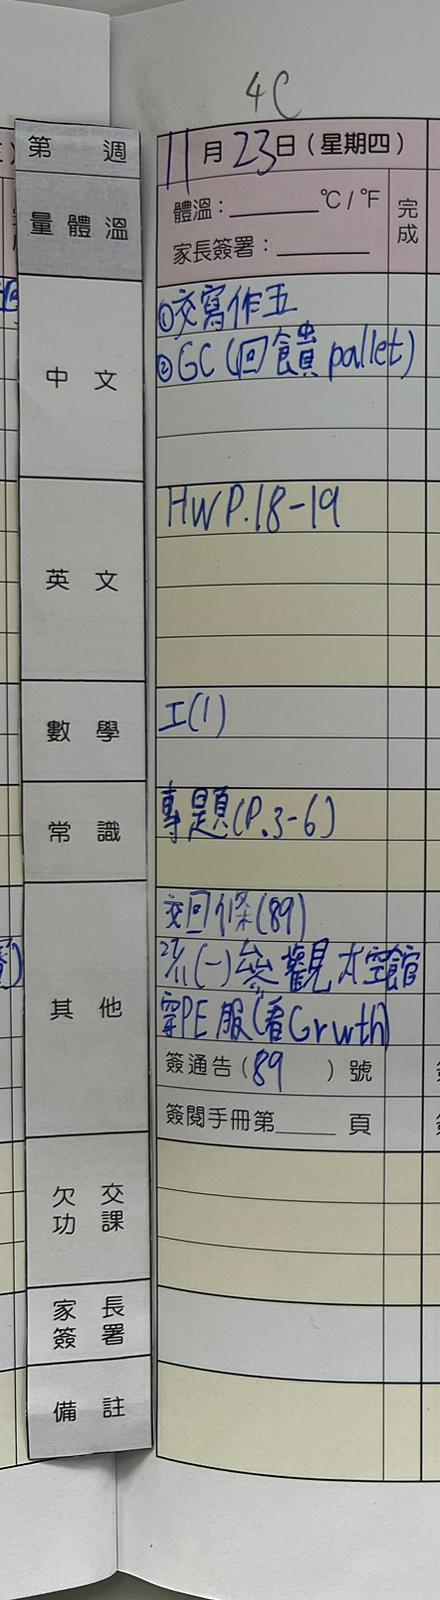 4C
第 週
11月23日(星期四)
量體溫
體溫：______°C/°F
完成
家長簽署：______
中文
①交寫作五
②GC(回饋pallet)
英文
HW P.18-19
數學
工(1)
常識
專題(P.3-6)
其他
交回條(89)
27/11(一)參觀太空館
穿PE服(看Grwth)
簽通告(89)號
簽閱手冊第____頁
欠交功課
家長簽署
備註